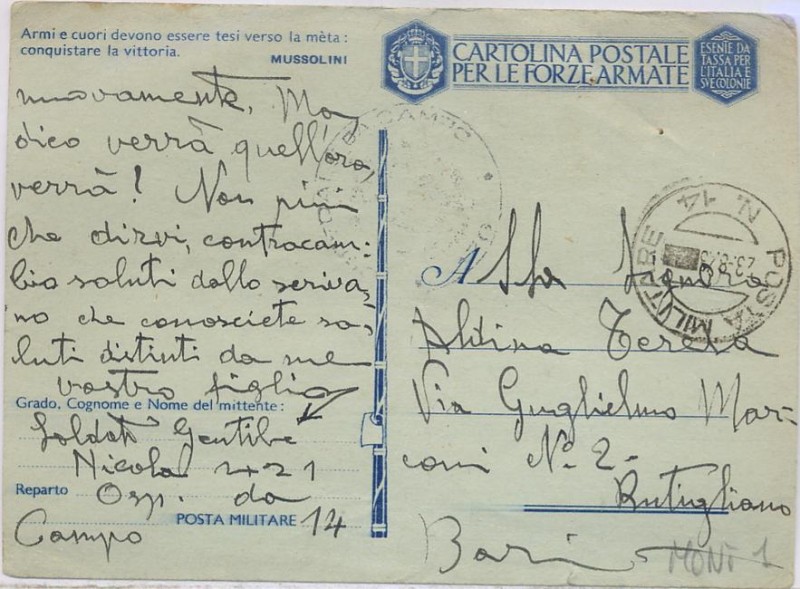 Armi e cuori devono essere tesi verso la mèta :
conquistare la vittoria.
MUSSOLINI
nuovamente, Ma
dico verrà quell'ora,
verrà! Non più
che dirvi, contracam-
bio saluti dallo scriva-
no che conoscete sa-
luti distinti da me
vostro figlio
Grado, Cognome e Nome del mittente :
Soldato Gentile
Nicola 421
Reparto Osp. da
POSTA MILITARE 14
Campo
CARTOLINA POSTALE
PER LE FORZE ARMATE
ESENTE DA
TASSA PER
L'ITALIA E
SVE COLONIE
DA CAMPO
POSTA MILITARE
N. 14
A Sig.ra Signora
Aldina Teresa
Via Guglielmo Mar-
coni N. 2-
Rutigliano
Bari
MONT 1